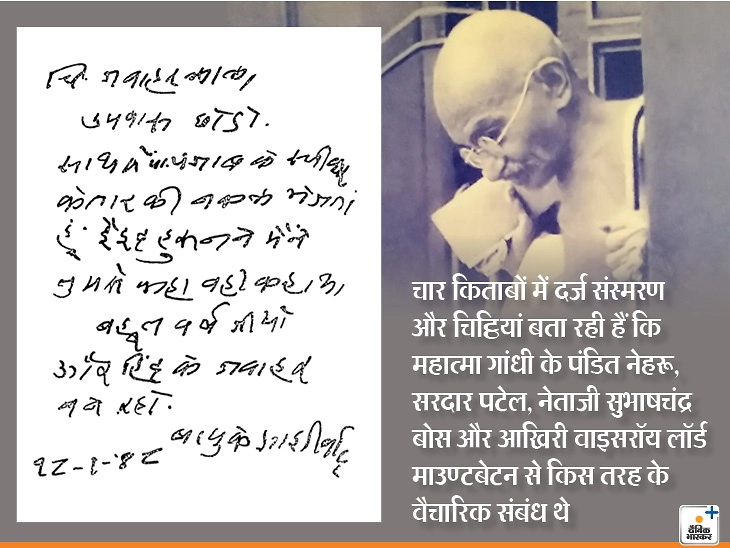 चि. जवाहरलाल,
उपवास छोडो.
साथमें पं. पंजाब के स्पीकर
के तार की नकल भेजता
हुं. जहीद हुसेनने मैंने
तुमसे कहा वही कहा था.
बहूत वर्ष जीयो
और हिंद के जवाहर
बने रहो.
बापुके आशीर्वाद
१८-१-४८
चार किताबों में दर्ज संस्मरण
और चिट्ठियां बता रही हैं कि
महात्मा गांधी के पंडित नेहरू,
सरदार पटेल, नेताजी सुभाषचंद्र
बोस और आखिरी वाइसरॉय लॉर्ड
माउण्टबेटन से किस तरह के
वैचारिक संबंध थे
दैनिक
भास्कर